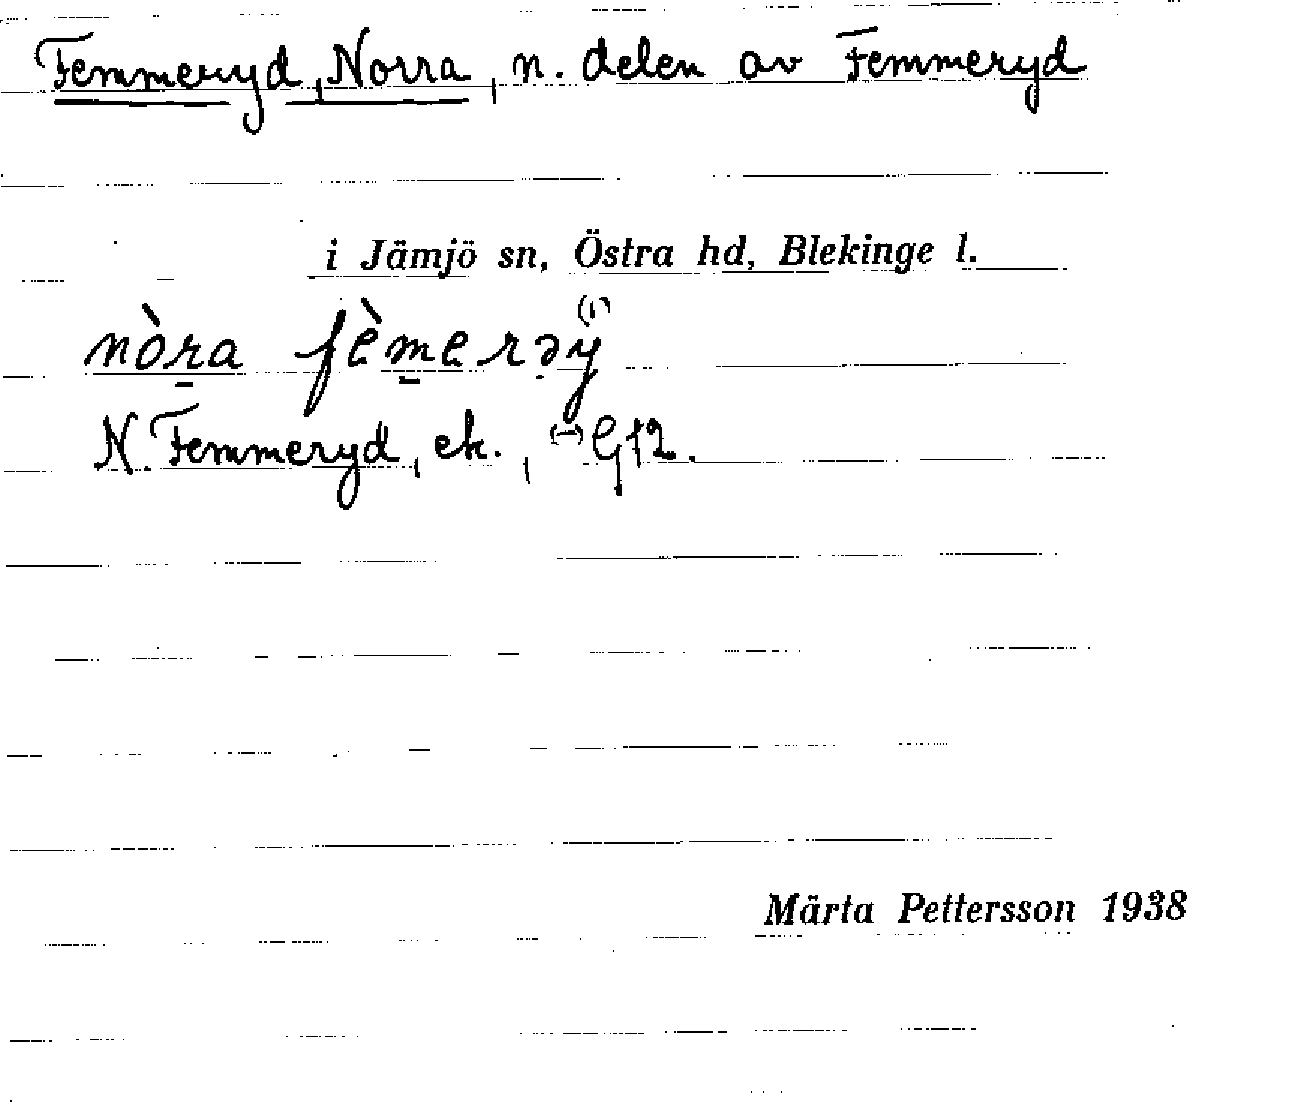 Femmeryd, Norra, n. delen av Femmeryd
i Jämjö sn, Östra hd, Blekinge l.
nòra fèmerəy
N. Femmeryd, ek.,
Märta Pettersson 1938